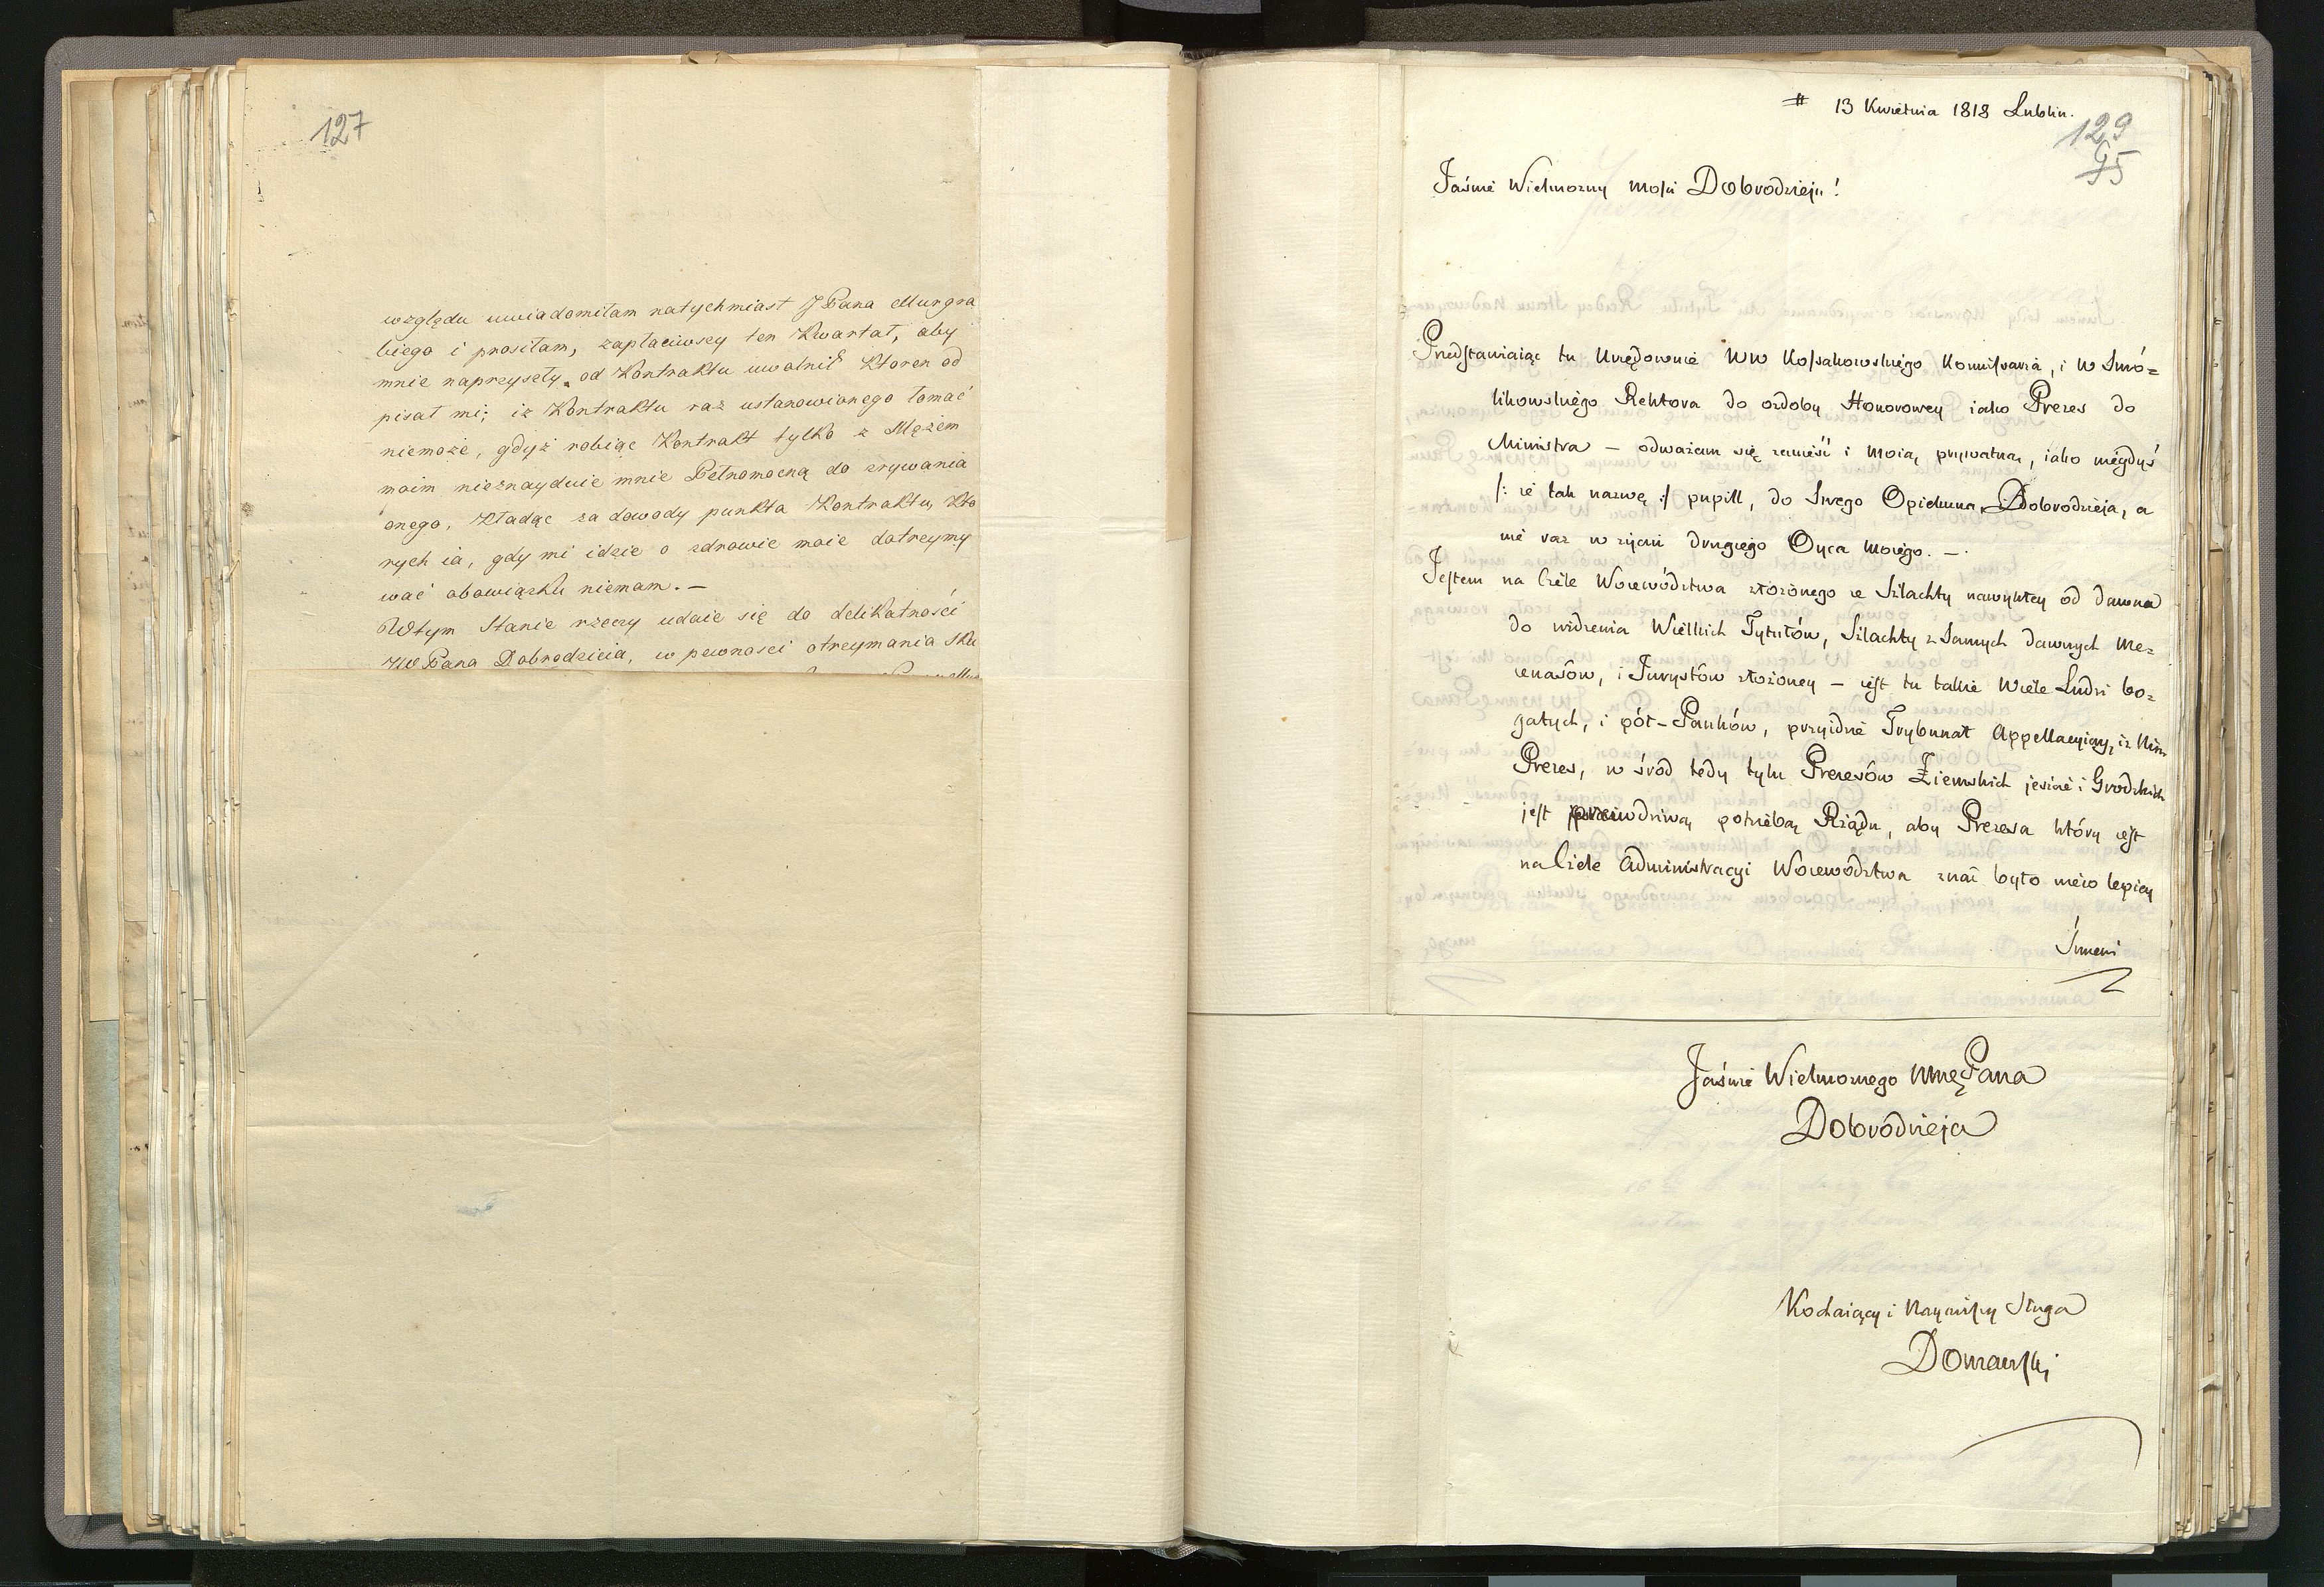 127
względu uwiadomiłam natychmiast JPana Murgra
biego i prosiłam, zapłaciwszy ten Kwartał, aby
mnie naprzyszły od Kontraktu uwolnił Ktoren od
pisał mi; iż Kontraktu raz ustanowionego łomać
niemoże, gdyż robiąc Kontrakt tylko z Mężem
moim nieznayduie mnie Pełnomocną do zrywania
onego, Kładąc za dowody punkta Kontraktu, Kto
rych ia, gdy mi idzie o zdrowie moie dotrzymy
wać obowiązku niemam. —
Wtym Stanie rzeczy udaie się do delikatności
JW Pana Dobrodzieia, w pewności otrzymania sku
# 13 Kwietnia 1818 Lublin.
129
95
Jaśnie Wielmożny Mości Dobrodzieju!
Przedstawiaiąc tu Urzędownie WW Kossakowskiégo Kommissarza, i W Smó=
likowskiégo Rektora do ozdoby Honorowey iako Prezes do
Ministra — odważam się zanieść i Moią prywatną, iako niegdyś
/: że tak nazwę :/ pupill, do Swego Opiekuna Dobrodzieja, a
nie raz w życiu drugiégo Oyca Moiégo. —
Jestem na Czéle Woiewództwa złożonégo ze Szlachty nawykłey od dawna
do widzenia Wielkich Tytułów, Szlachty z Samych dawnych Me=
cenasów, i Jurystów złożoney — iest tu także Wiele Ludzi bo=
gatych, i pół-Panków, przyidzie Trybunał Appellacyiny, iż Nim
Prezes, w śród tedy tylu Prezesów Ziemskich jeszcze i Grodzkich
jest prawdziwą potrzebą Rządu, aby Prezesa który iest
na Czele Administracyi Woiewództwa znać było nieco lepiey
Jmieni
Jaśnie Wielmożnego MnęPana
Dobrodzieja
Kochaiący i Nayniższy Sługa
Domański